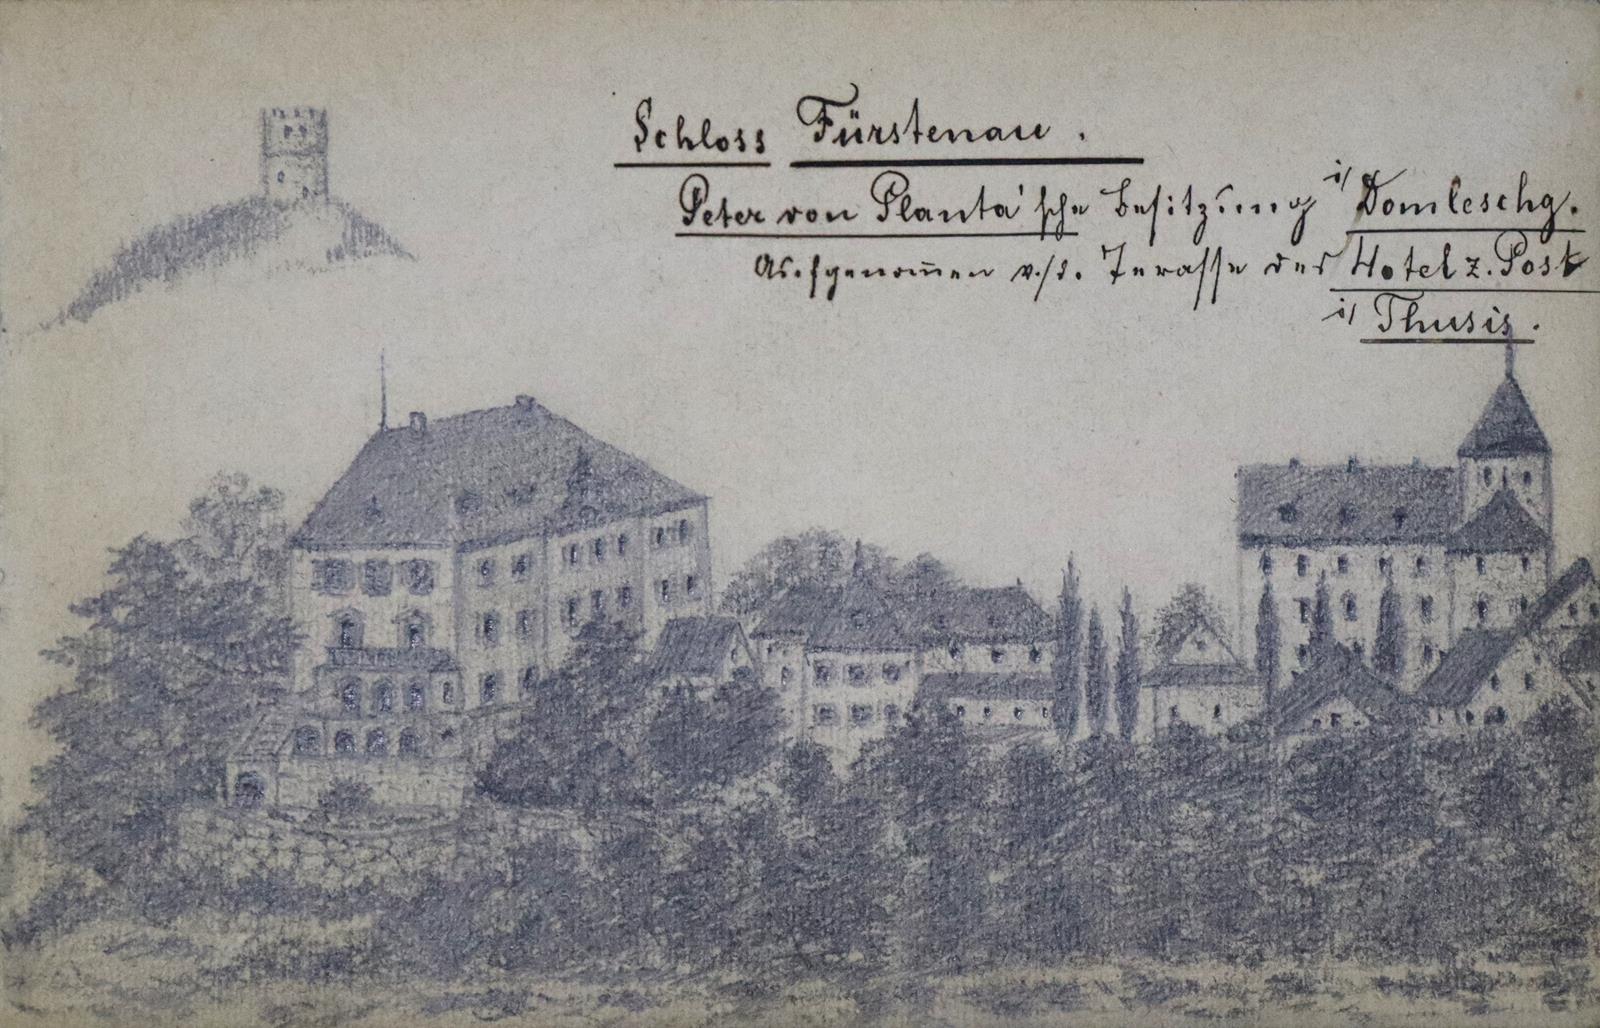 Schloss Fürstenau.
Peter von Planta'sche Besitzung i/ Domleschg.
Aufgenom̅en v/d. Terasse des Hotel z. Post
i/ Thusis.